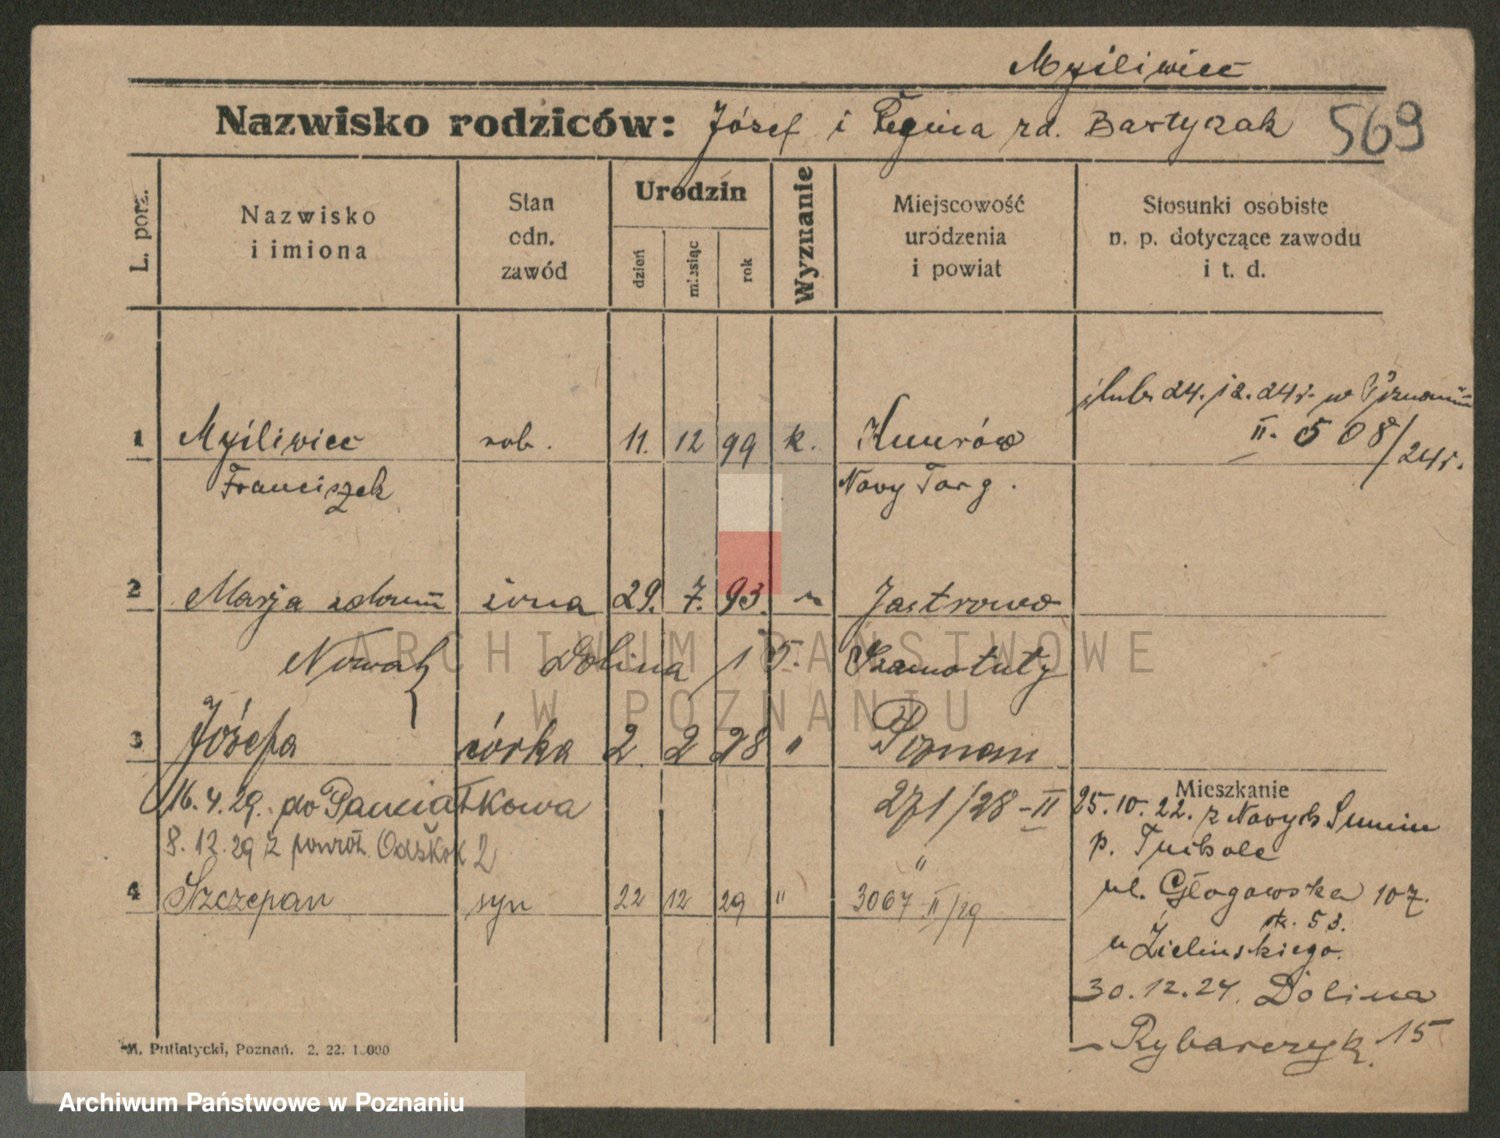 Myśliwiec
Nazwisko rodziców: Józef i Regina zd. Bartyzak 569
L. porz.
Nazwisko
i imiona
Stan
odn.
zawód
Urodzin
dzień
miesiąc
rok
Wyznanie
Miejscowość
urodzenia
i powiat
Stosunki osobiste
n. p. dotyczące zawodu
i t. d.
ślub 24.12.24 r. w Poznaniu
II. 508/24 r.
1 Myśliwiec rob. 11. 12 99 k.
Franciszek Nowy Targ.
2 Marja żona 29. 7. 93. " Jastrowo
Nowak Dolina 15. Szamotuły
3 Józefa córka 2. 2 28 " Poznań
16.4.29. do Pamiątkowa 271/28-II
8.12.29 z powrot. 2 "
4 Szczepan syn 22 12 29 " 3067 II/29
Mieszkanie
25.10.22. z Nowych
p.
ul. Głogowska 107.
m. 53.
u Zielińskiego.
30.12.24. Dolina
Rybarczyk. 15
M. Putiatycki, Poznań. 2. 22. 1.000
ARCHIWUM PAŃSTWOWE
W POZNANIU
Archiwum Państwowe w Poznaniu